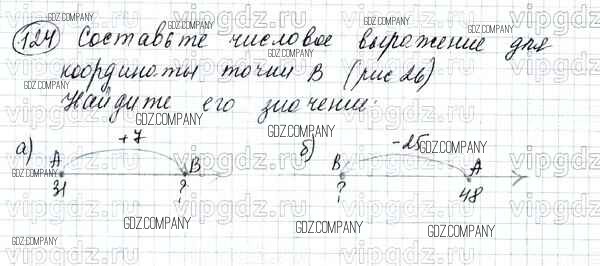 124 Составьте числовое выражение для
координаты точки В (рис 26)
Найдите его значение.
а) +7
А В
31 ?
б) -25
В А
? 48
GDZ.COMPANY
vipgdz.ru